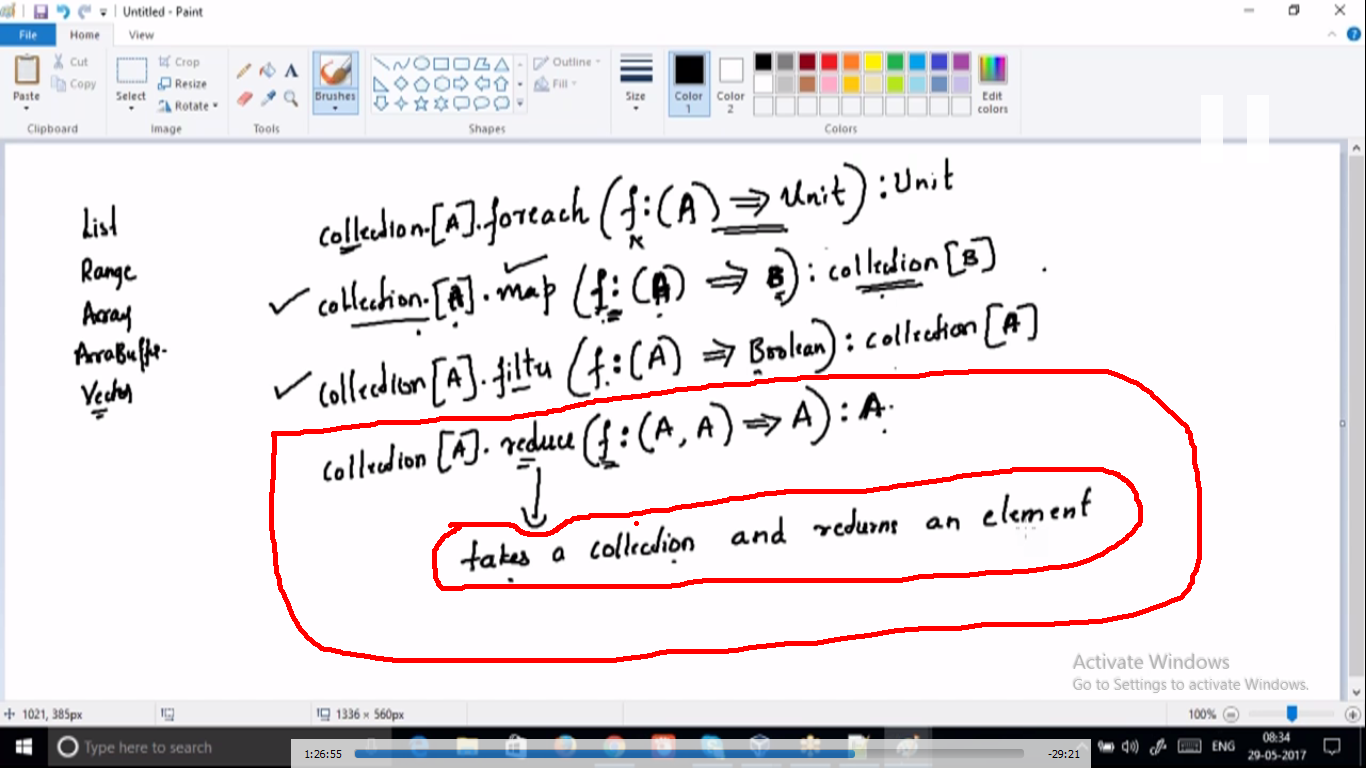 Untitled - Paint
File Home View
Paste
Cut
Copy
Clipboard
Select
Crop
Resize
Rotate
Image
Tools
Brushes
Shapes
Outline
Fill
Size
Color 1
Color 2
Edit colors
Colors
List
Range
Array
ArraBuffer.
Vector
collection.[A].foreach (f:(A) => Unit) : Unit
collection.[A].map (f:(A) => B) : collection [B]
collection [A].filter (f:(A) => Boolean) : collection [A]
collection [A].reduce (f:(A, A) => A) : A.
takes a collection and returns an element
Activate Windows
Go to Settings to activate Windows.
1021, 385px
1336 × 560px
100%
Type here to search
1:26:55
-29:21
ENG
08:34
29-05-2017